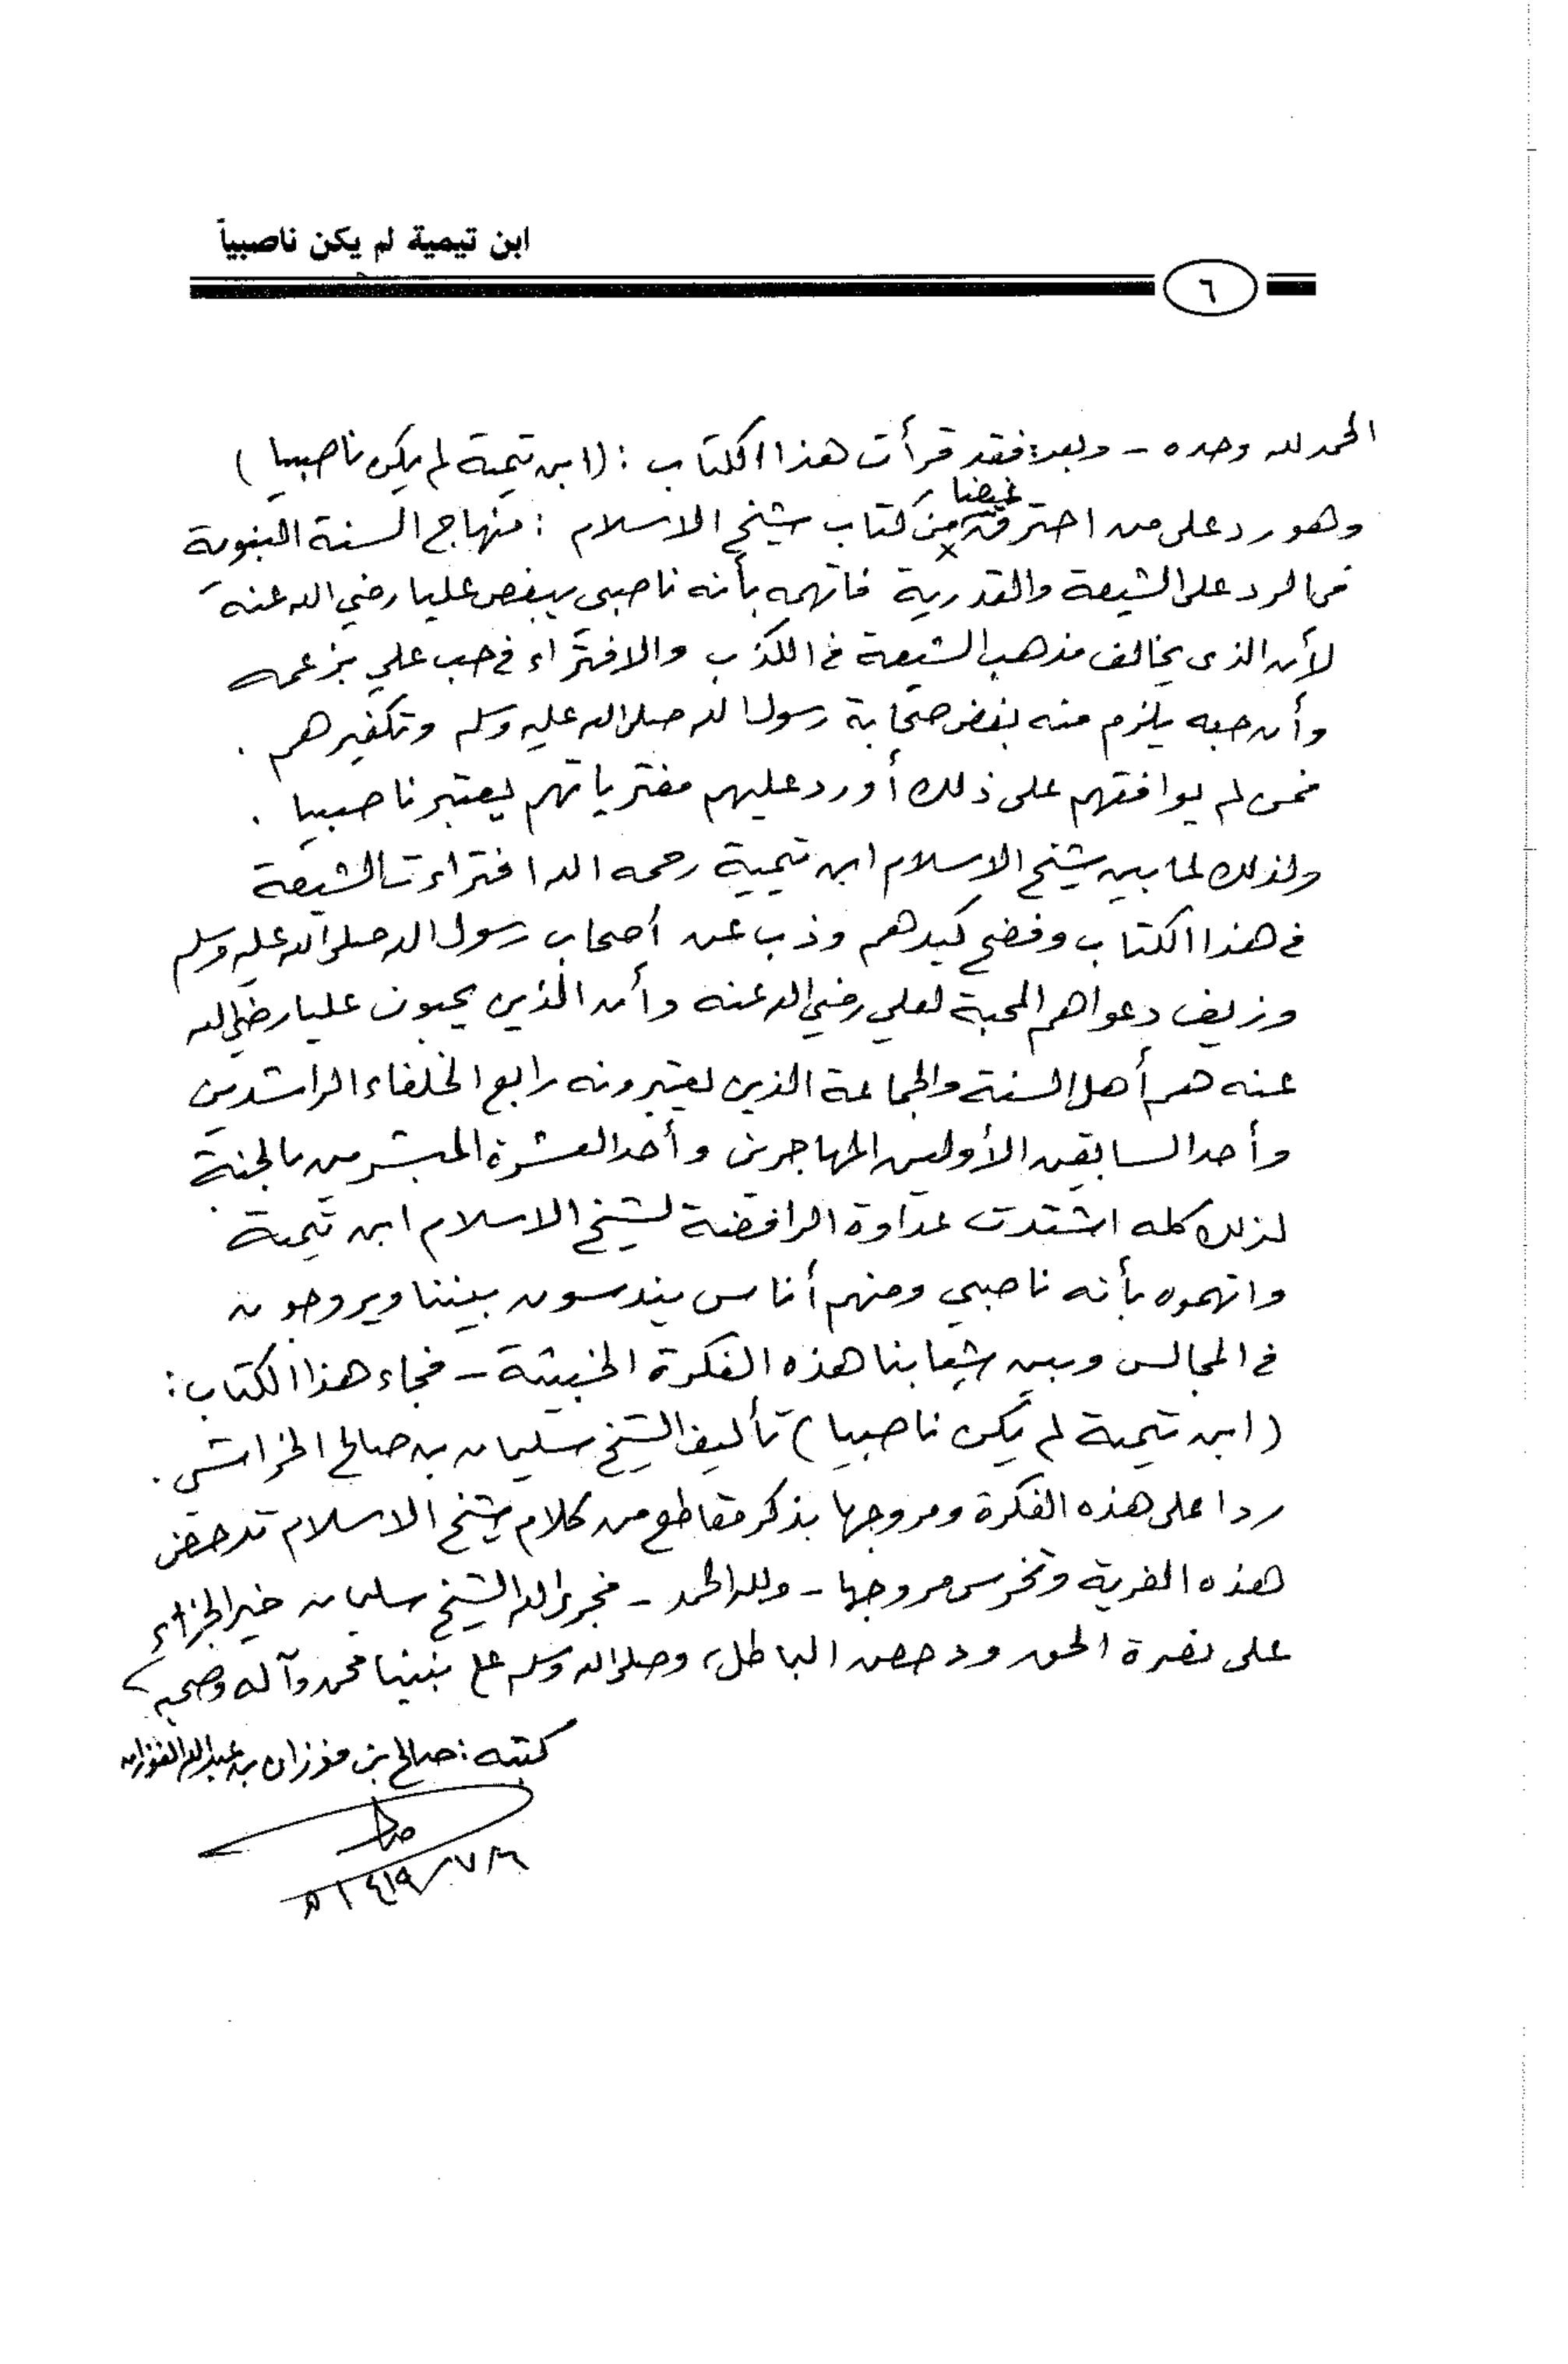 ابن تيمية لم يكن ناصبياً
٦
الحمد لله وحده - وبعد: فقد قرأت هذا الكتاب: (ابن تيمية لم يكن ناصبيا)
غيضا
وهو رد على من احترق من كتاب شيخ الاسلام: منهاج السنة النبوية
في الرد على الشيعة والقدرية فاتهمه بأنه ناصبي يبغض عليا رضي الله عنه
لأن الذي يخالف مذهب الشيعة في الكذب والافتراء في حب علي بزعمه
وأن حبه يلزم منه بغض صحابة رسول الله صلى الله عليه وسلم وتكفيرهم .
فمن لم يوافقهم على ذلك أو رد عليهم مفترياتهم يعتبر ناصبيا .
ولذلك لما بين شيخ الاسلام ابن تيمية رحمه الله افتراءات الشيعة
في هذا الكتاب وفضح كيدهم وذب عن أصحاب رسول الله صلى الله عليه وسلم
وزيف دعواهم المحبة لعلي رضي الله عنه وأن الذين يحبون عليا رضي الله
عنه هم أهل السنة والجماعة الذين يعتبرونه رابع الخلفاء الراشدين
وأحد السابقين الأولين المهاجرين وأحد العشرة المبشرين بالجنة
لذلك كله اشتدت عداوة الرافضة لشيخ الاسلام ابن تيمية
واتهموه بأنه ناصبي ومنهم أناس يندسون بيننا ويروجون
في المجالس وبين شبابنا هذه الفكرة الخبيثة - فجاء هذا الكتاب:
(ابن تيمية لم يكن ناصبيا) تأليف الشيخ سليمان بن صالح الخراشي .
ردا على هذه الفكرة ومروجها بذكر مقاطع من كلام شيخ الاسلام تدحض
هذه الفرية وتخرس مروجها - ولله الحمد - فجزى الله الشيخ سليمان خير الجزاء
على نصرة الحق ودحض الباطل، وصلى الله وسلم على نبينا محمد وآله وصحبه
كتبه: صالح بن فوزان بن عبدالله الفوزان
١٤١٩/٧/٦ هـ